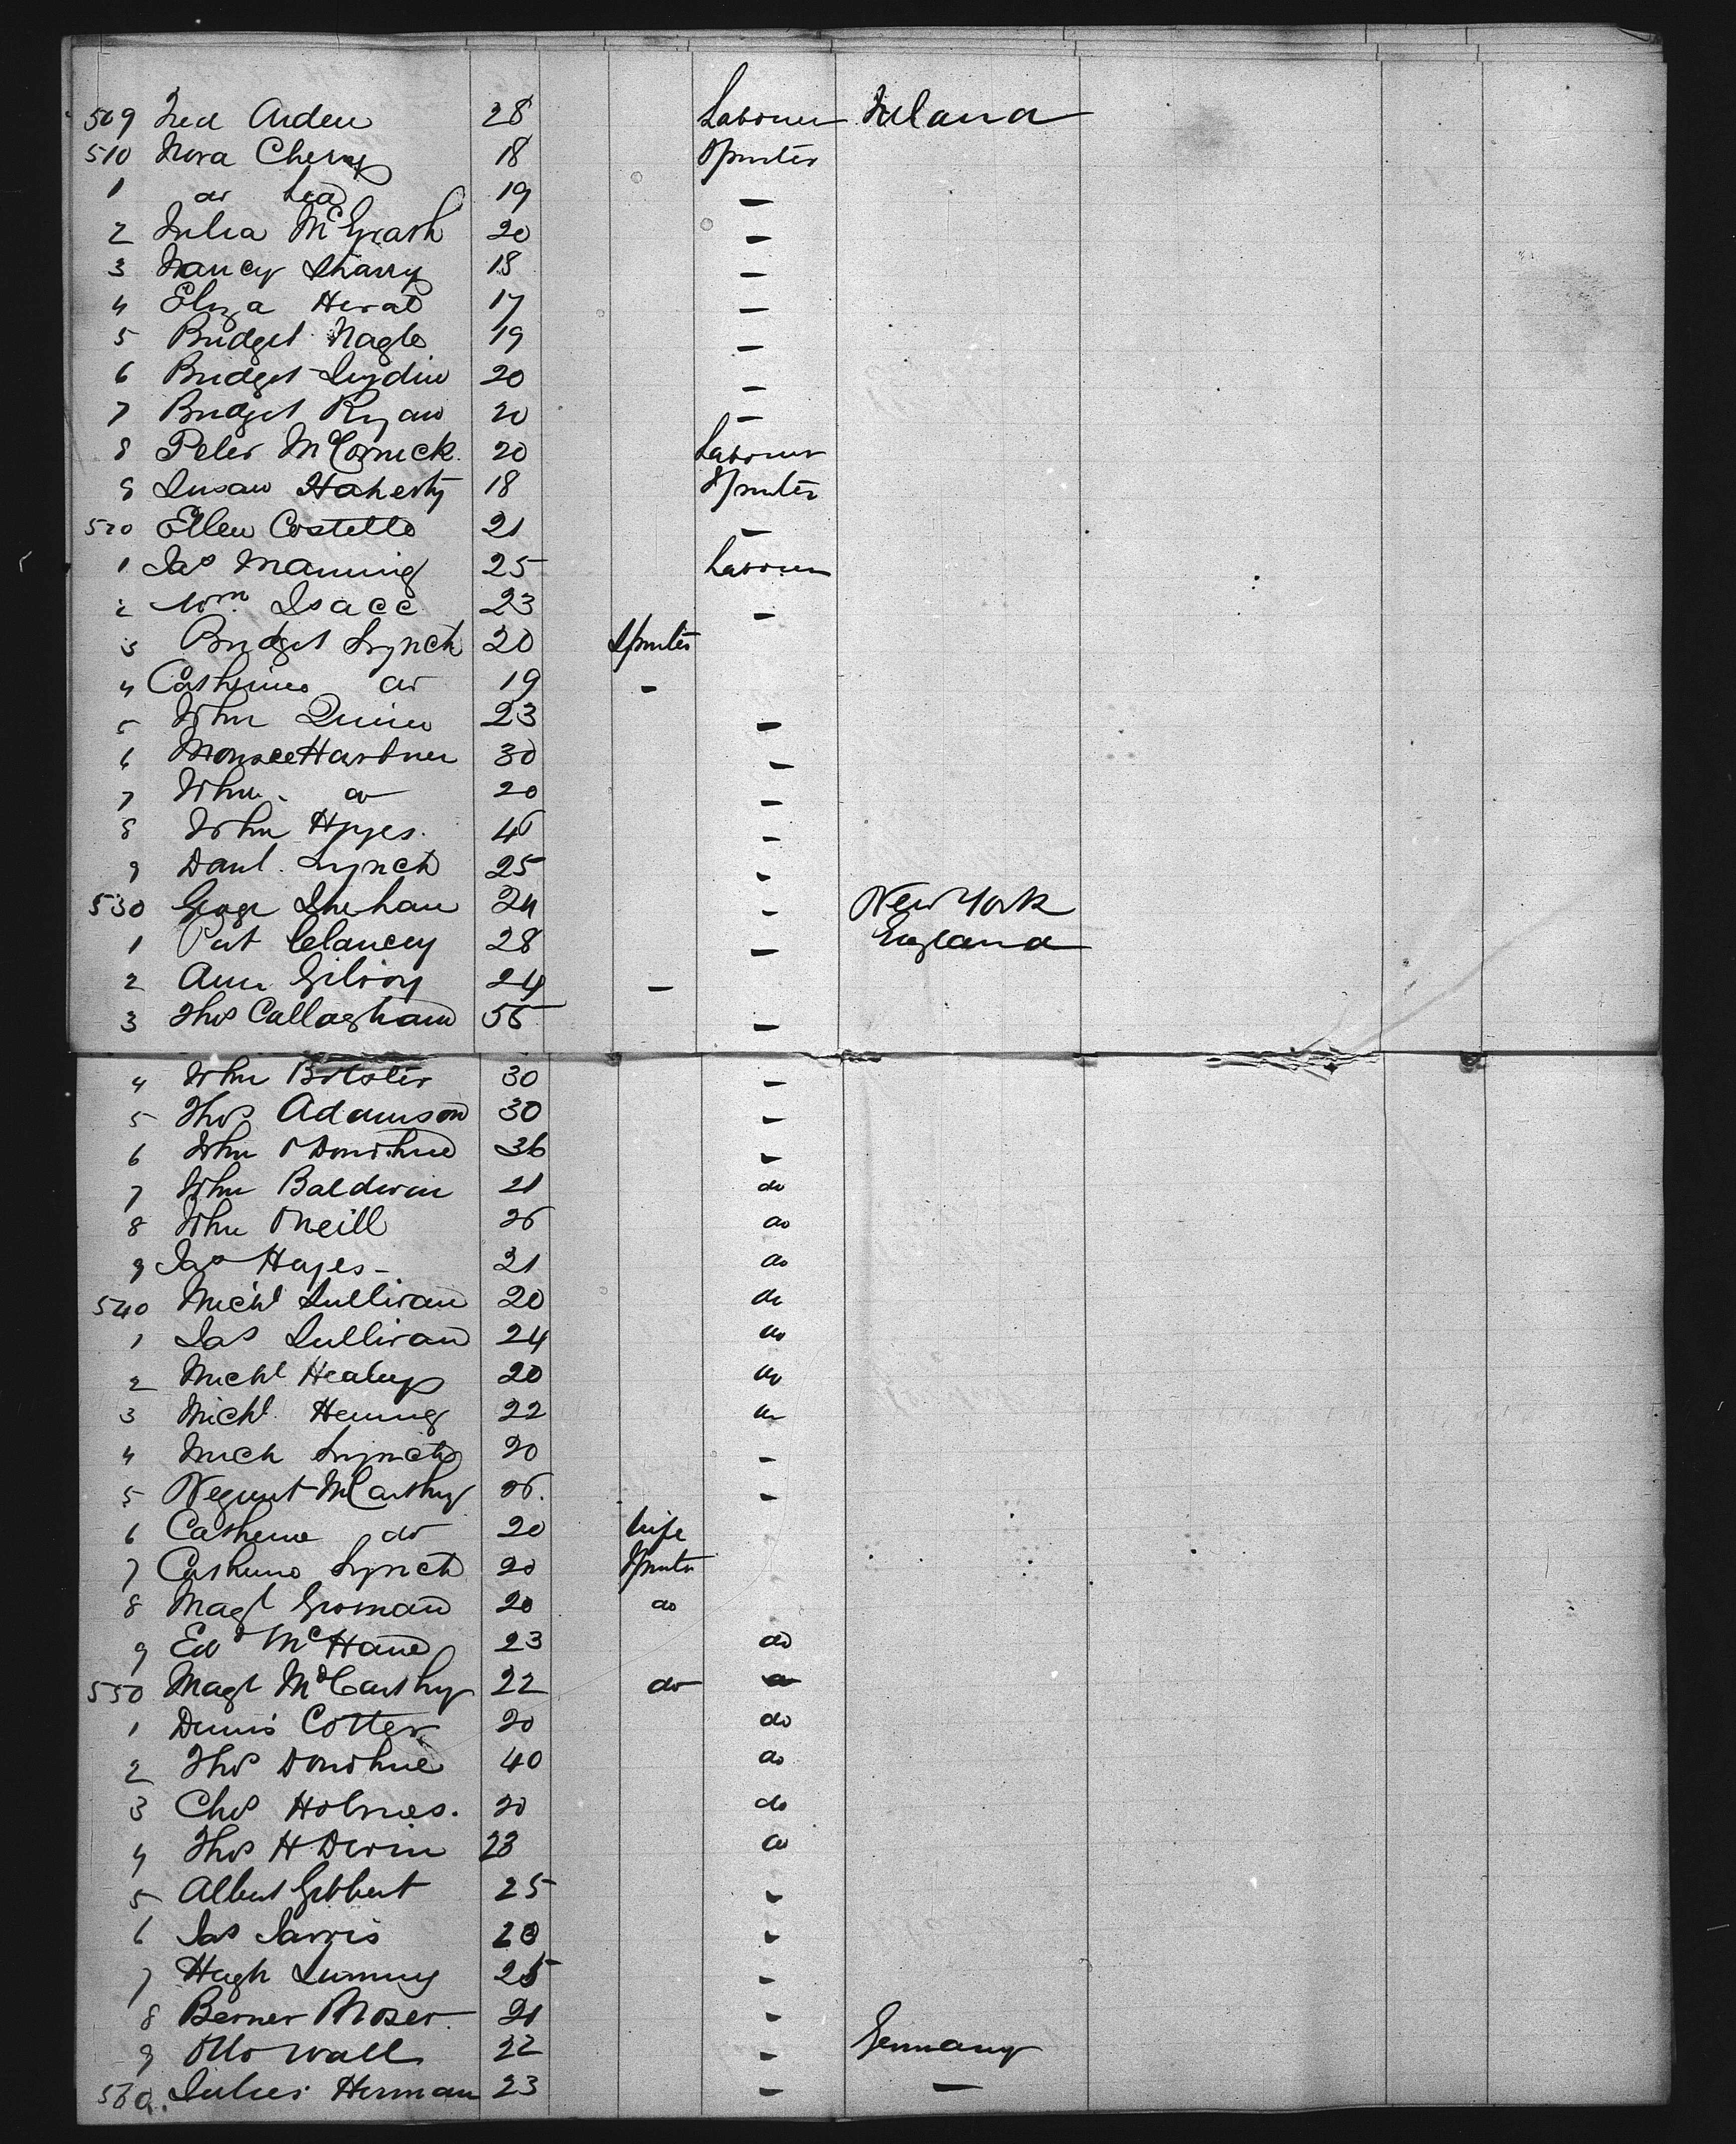 509 Arden 28 Laborer Ireland
510 Nora Cherry 18 Spinster
1 do 19 —
2 Julia McGrath 20 —
3 Nancy Sharry 18 —
4 Eliza 17 —
5 Bridget Nagle 19 —
6 Bridget 20 —
7 Bridget Ryan 20 —
8 Peter McCormick. 20 Laborer
9 Susan Flaherty 18 Spinster
520 Ellen Costello 21 —
1 Jas Manning 25 Laborer
2 Wm. Isacc 23 —
3 Bridget Lynch 20 Spinster
4 Catherine do 19 —
5 John Quinn 23 —
6 30 —
7 John do 20 —
8 John Hyges. —
9 Danl. Lynch 25 —
530 George Shehan 24 — New York
1 Pat Clancey 28 — England
2 Ann Gilroy 24 —
3 Thos Callaghan —
4 John Bolster 30 —
5 Thos Adamson 30 —
6 John ODonohue 36 —
7 John Baldwin 21 do
8 John ONeill do
9 Jas Hayes - 21 do
540 Michl Sullivan 20 do
1 Jas Sullivan 24 do
2 Michl Healey 20 do
3 Michl 22 do
4 Mich Lynch 20 —
5 McCarthy —
6 Catherine do 20 Wife
7 Catherine Lynch 20 Spinster
8 Magt 20 do
9 Ed McHane 23 do
550 Magt McCarthy 22 do
1 Dennis Cotter 20 do
2 Thos Donohue 40 do
3 Chas Holmes. 20 do
4 Thos H Devin 23 do
5 Albert Gibbert 25 —
6 Jas Jarvis —
7 Hugh 25 —
8 Berner Moser 21 —
9 Otto Wall 22 — Germany
560. Julius Herman 23 — —